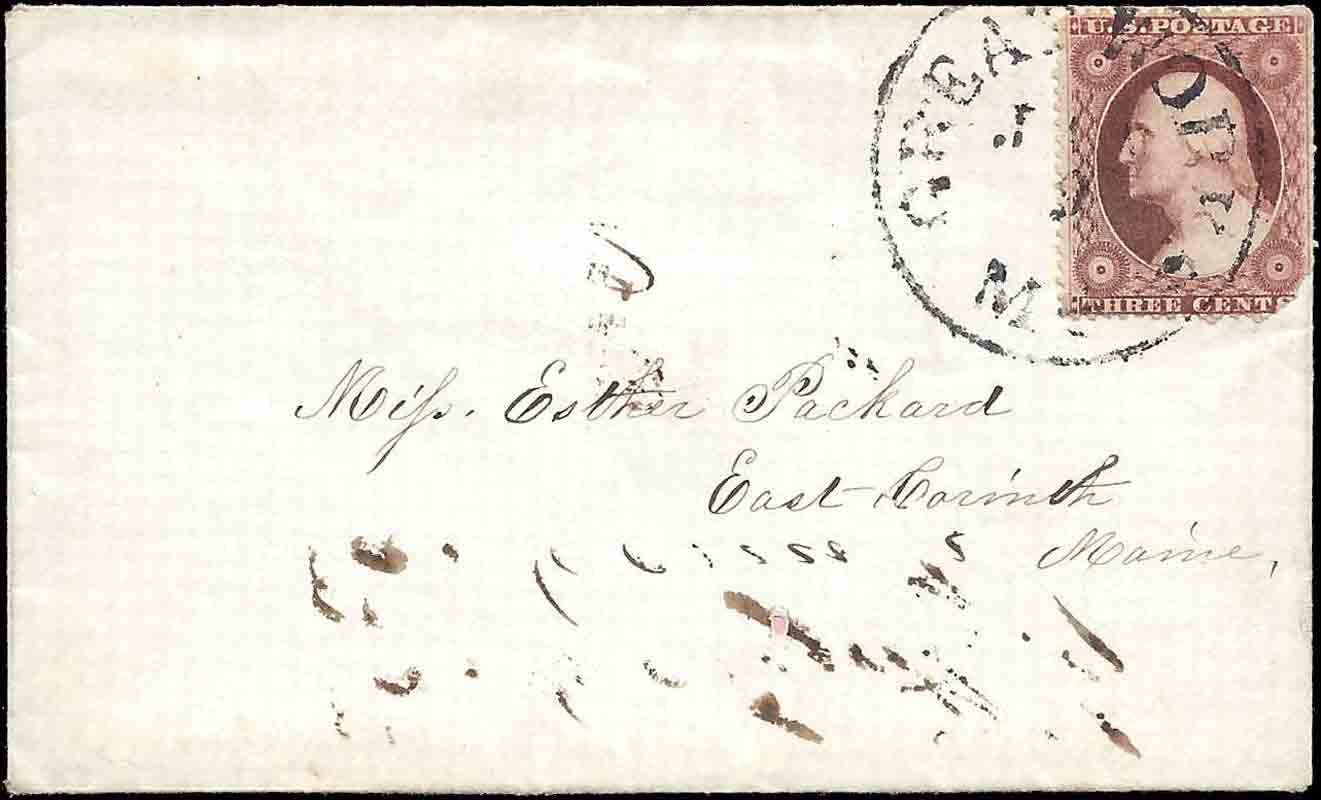 U.S. POSTAGE
GREAT
M
THREE CENTS
Miss. Esther Packard
East Corinth
Maine,